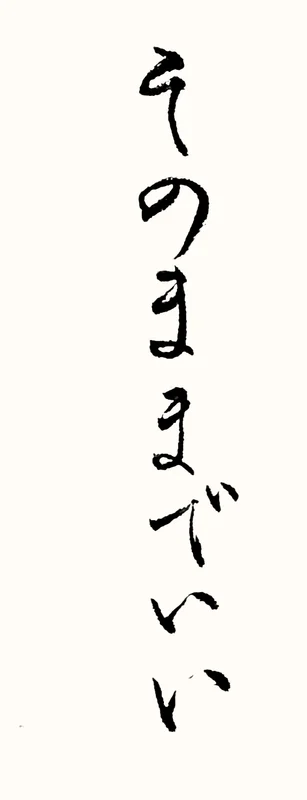 そのままでいい